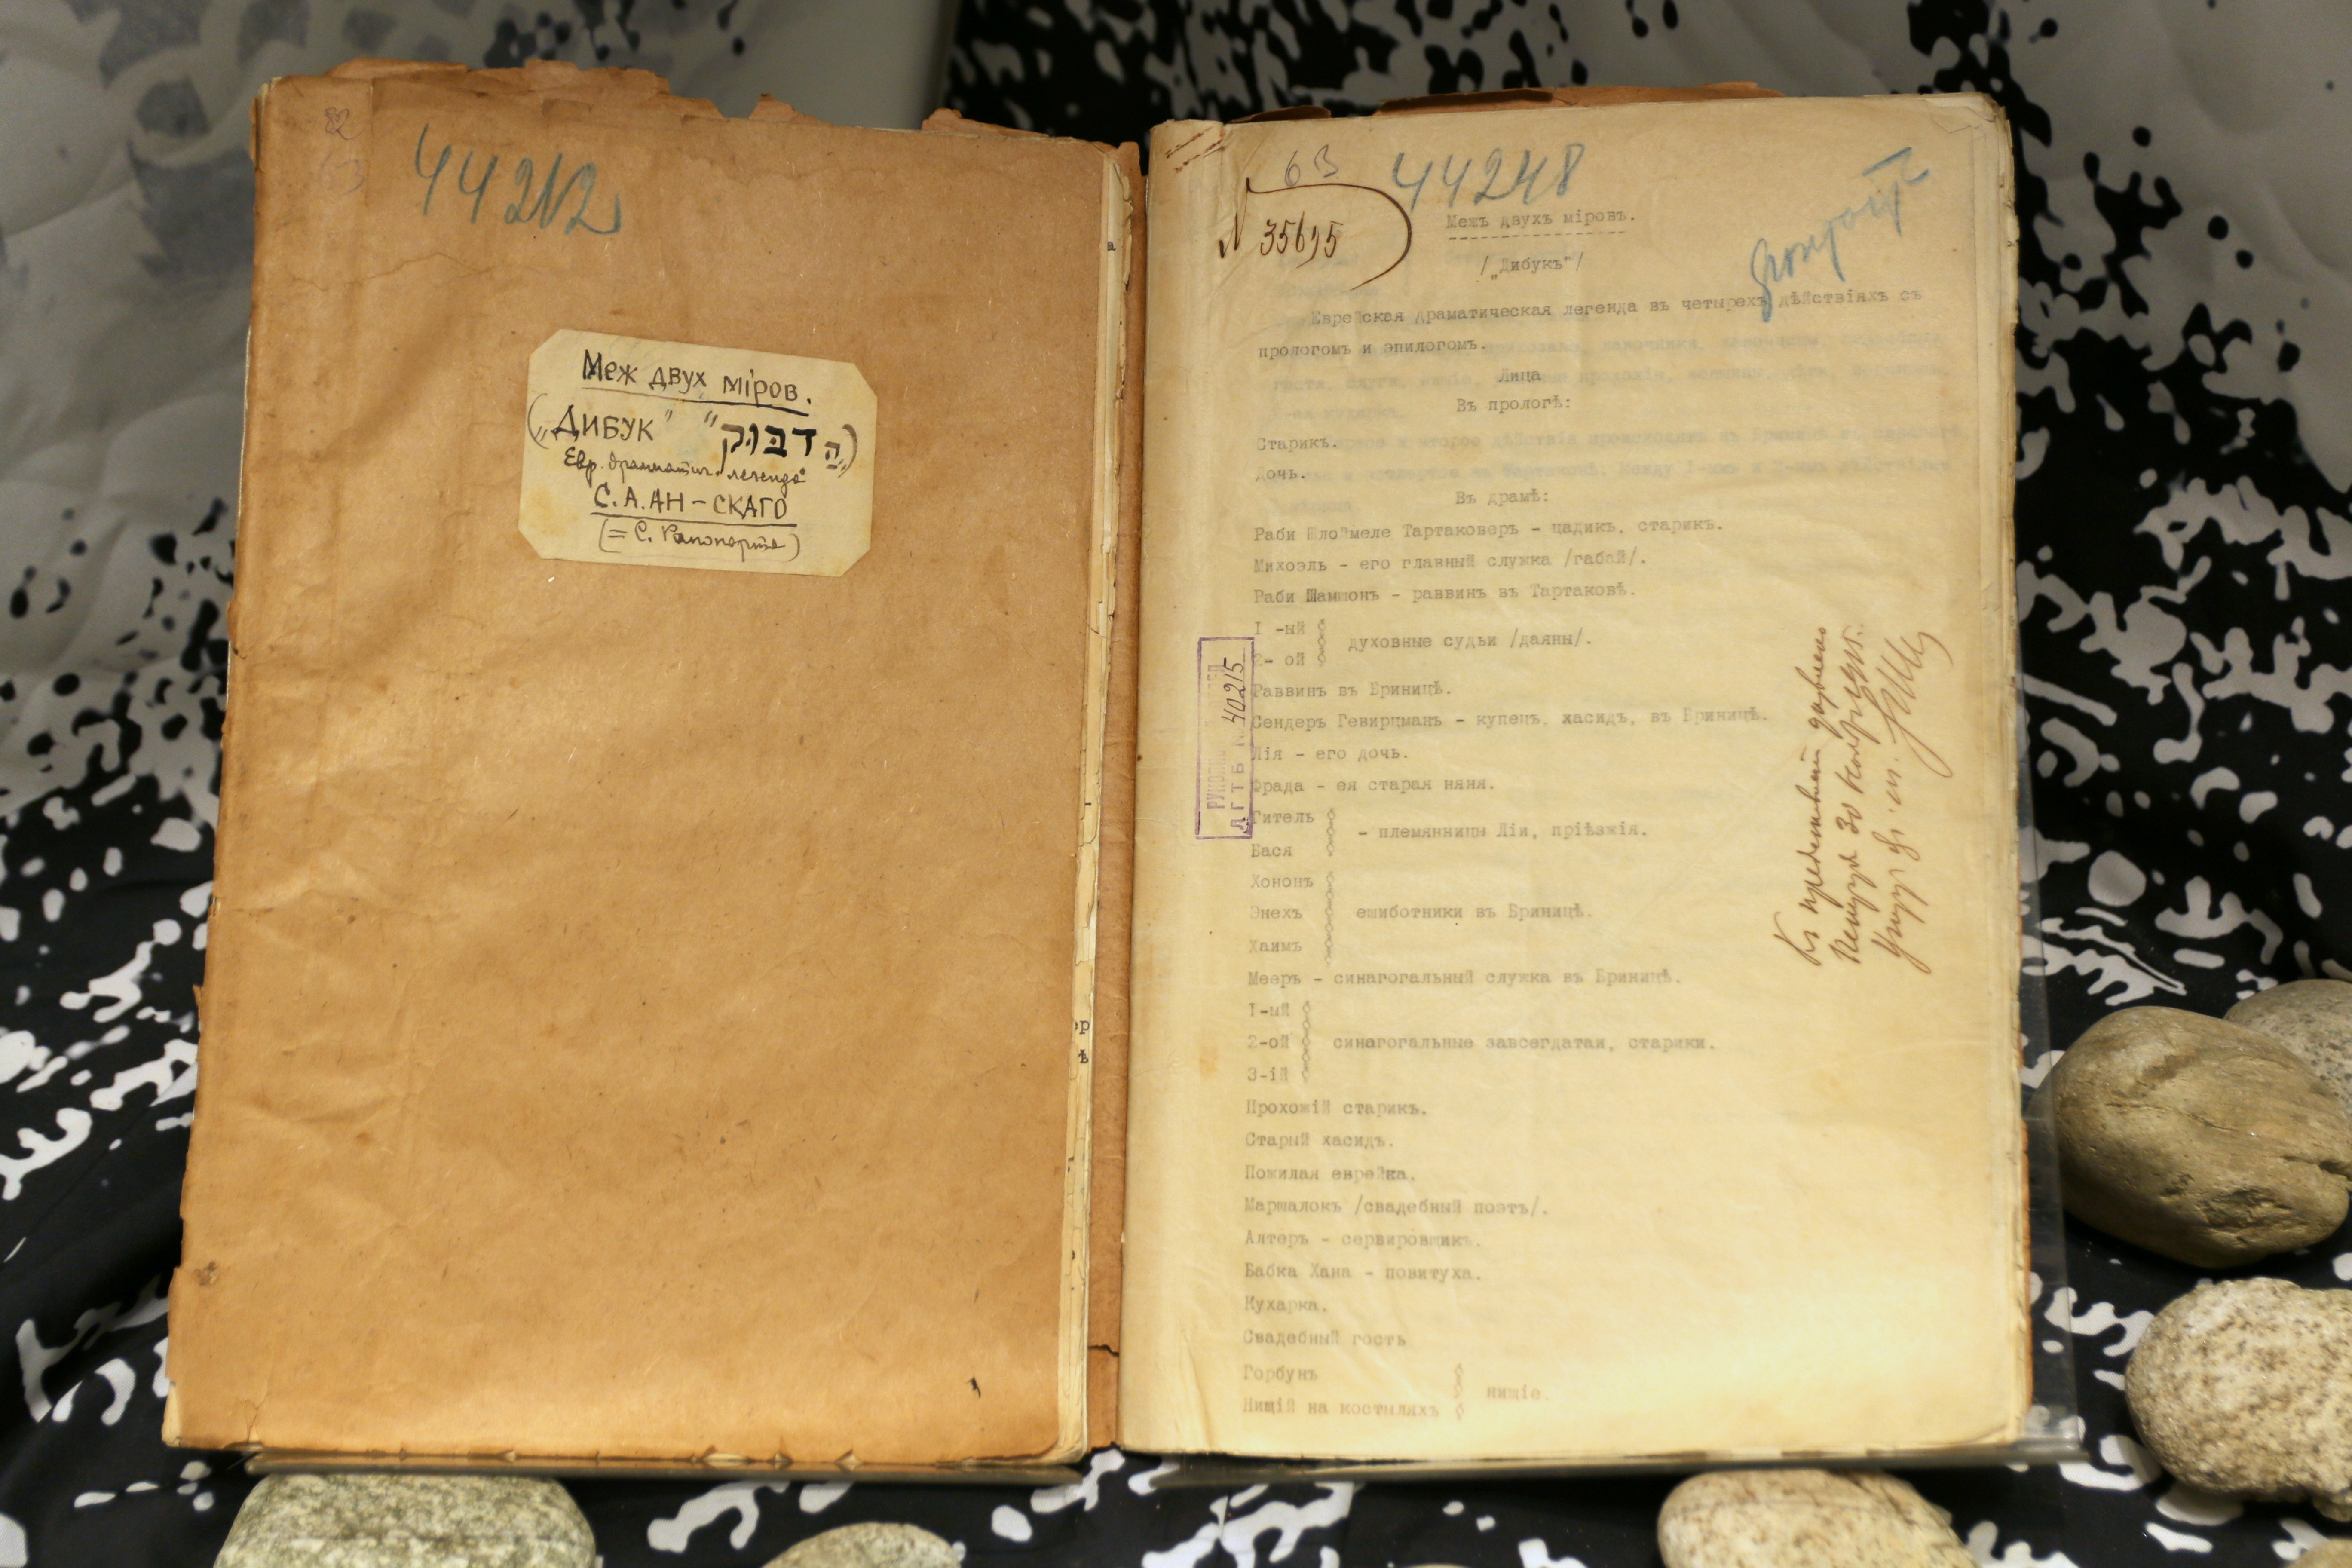 44212
Меж двух мiров.
(„Дибук" "הדבוק")
Евр. драматич. легенда
С. А. АН-СКАГО
(= С. Рапопорта)
63
44248
N 35695
Межъ двухъ мiровъ.
/„Дибукъ"/
Еврейская драматическая легенда въ четырехъ дѣйствiяхъ съ
прологомъ и эпилогомъ.
Лица
Въ прологѣ:
Старикъ.
Дочь.
Въ драмѣ:
Раби Шлоймеле Тартаковеръ - цадикъ, старикъ.
Михоэль - его главный служка /габай/.
Раби Шамшонъ - раввинъ въ Тартаковѣ.
I -ый
2- ой
духовные судьи /даяны/.
Раввинъ въ Бриницѣ.
Сендеръ Гевирцманъ - купецъ, хасидъ, въ Бриницѣ.
Лiя - его дочь.
Фрада - ея старая няня.
Гитель
Бася
- племянницы Лiи, прiѣзжiя.
Хононъ
Энехъ
Хаимъ
ешиботники въ Бриницѣ.
Мееръ - синагогальный служка въ Бриницѣ.
I-ый
2-ой
3-iй
синагогальные завсегдатаи, старики.
Прохожiй старикъ.
Старый хасидъ.
Пожилая еврейка.
Маршалокъ /свадебный поэтъ/.
Алтеръ - сервировщикъ.
Бабка Хана - повитуха.
Кухарка.
Свадебный гость
Горбунъ
Нищiй на костыляхъ
нищiе.
ЛГТБ
40215
Къ представленiю дозволено
30 ноября 1915 г.